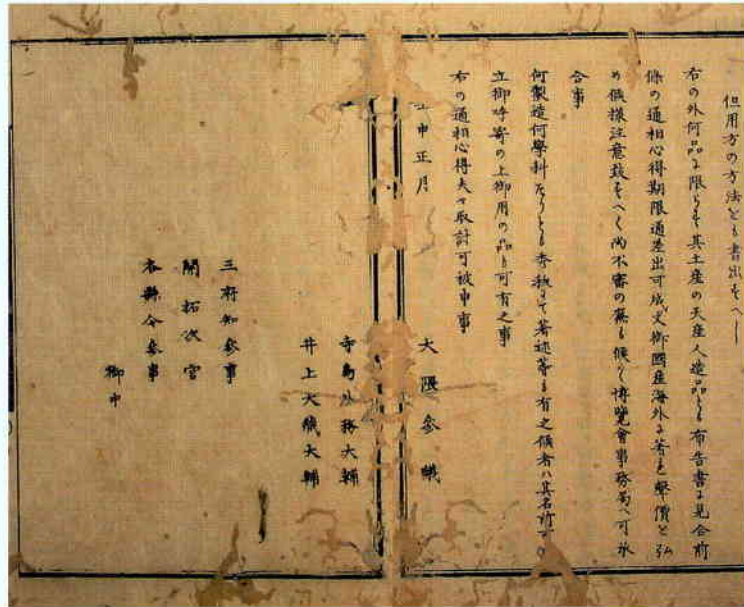 但用方の方法とも書出すへし
右の外何品に限らす其土産の天産人造品とも布告書に見合前
條の通相心得期限通差出可成丈御國産海外に著き聲價を弘
め候様注意致すへく尚不審の廉も候ハ博覽會事務局へ可承
合事
何製造何學科たりとも秀抜にて著述等も有之候者ハ其名前可申
立御呼寄の上御用の品も可有之事
右の通相心得夫々取計可被申事
壬申正月
大隈參議
寺島外務大輔
井上大藏大輔
三府知參事
開拓次官
各縣令參事
御中